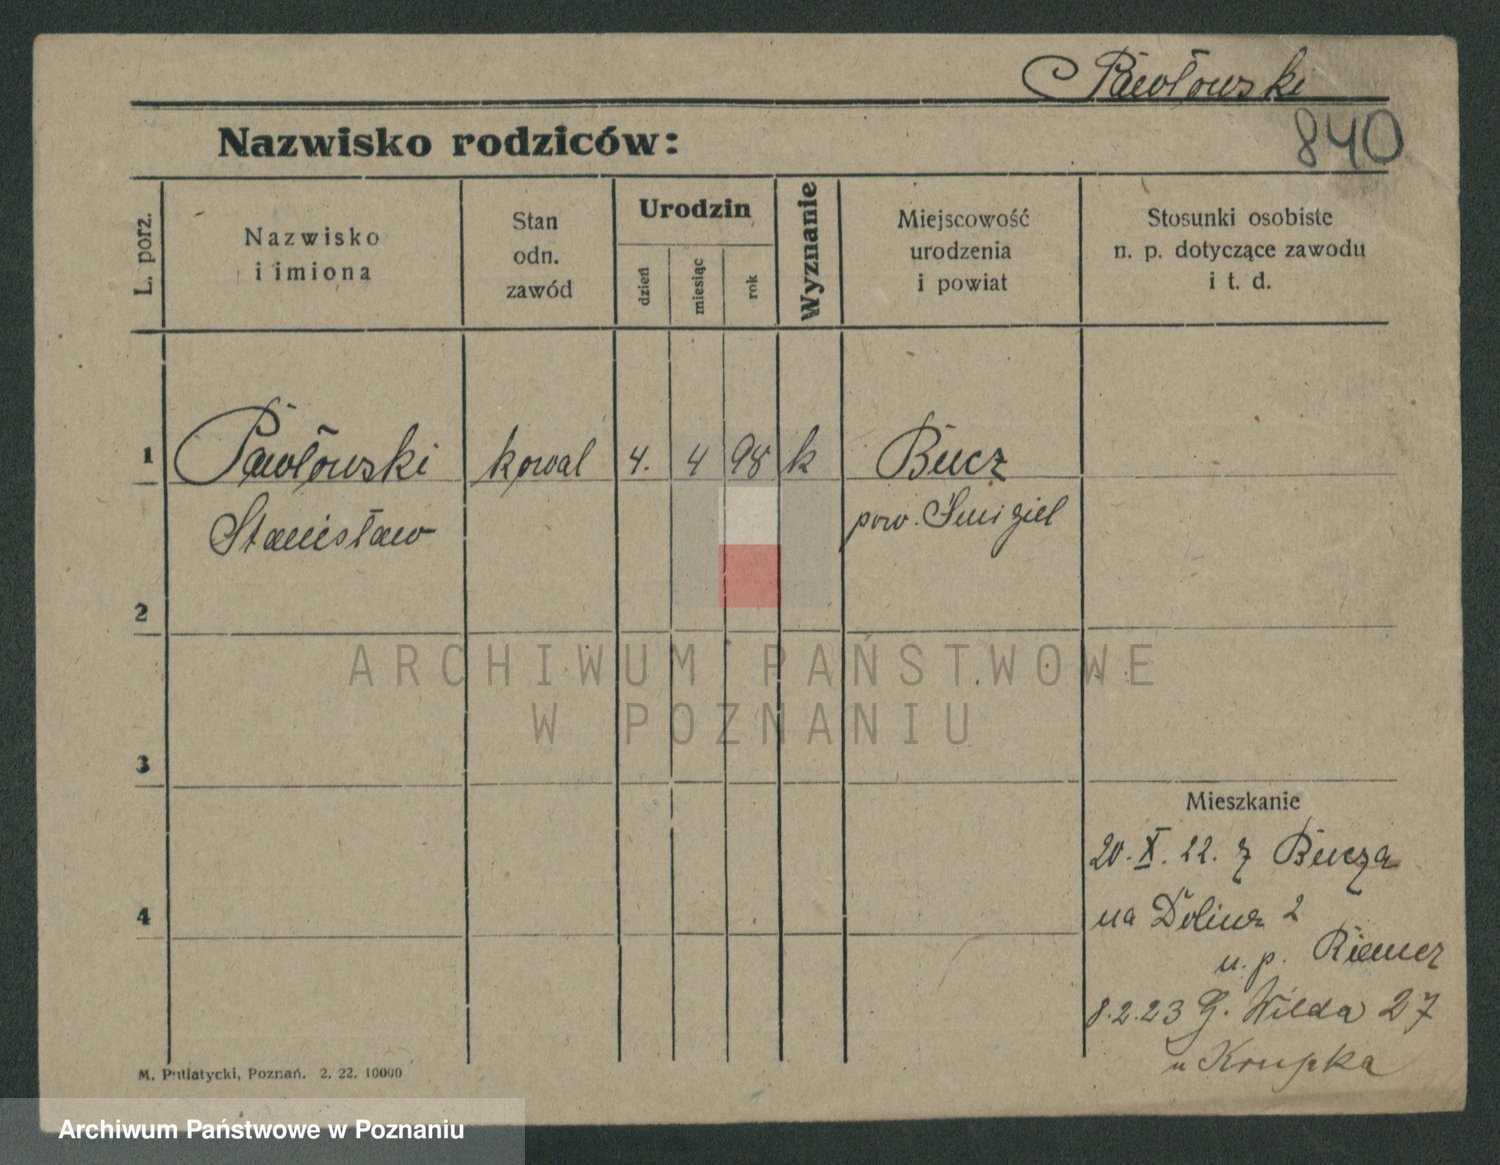 Pawłowski
840
Nazwisko rodziców:
L. porz.
Nazwisko
i imiona
Stan
odn.
zawód
Urodzin
dzień
miesiąc
rok
Wyznanie
Miejscowość
urodzenia
i powiat
Stosunki osobiste
n. p. dotyczące zawodu
i t. d.
1 Pawłowski kowal 4. 4 98 k Bucz
Stanisław pow. Śmigiel
2
ARCHIWUM PAŃSTWOWE
W POZNANIU
3
Mieszkanie
20. X. 22. z Bucza
4
na Dolinę 2
u. p. Riemer
8.2.23 G. Wilda 27
u Krupka
M. Putiatycki, Poznań. 2. 22. 10000
Archiwum Państwowe w Poznaniu